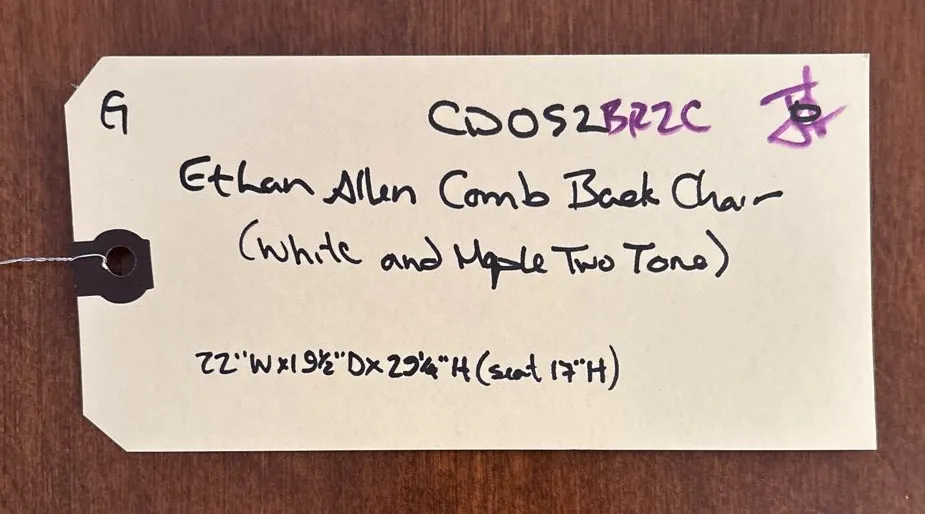 G CD052BR2C
Ethan Allen Comb Back Chair
(White and Maple Two Tone)
22"W x 19½"D x 29¼"H (seat 17"H)